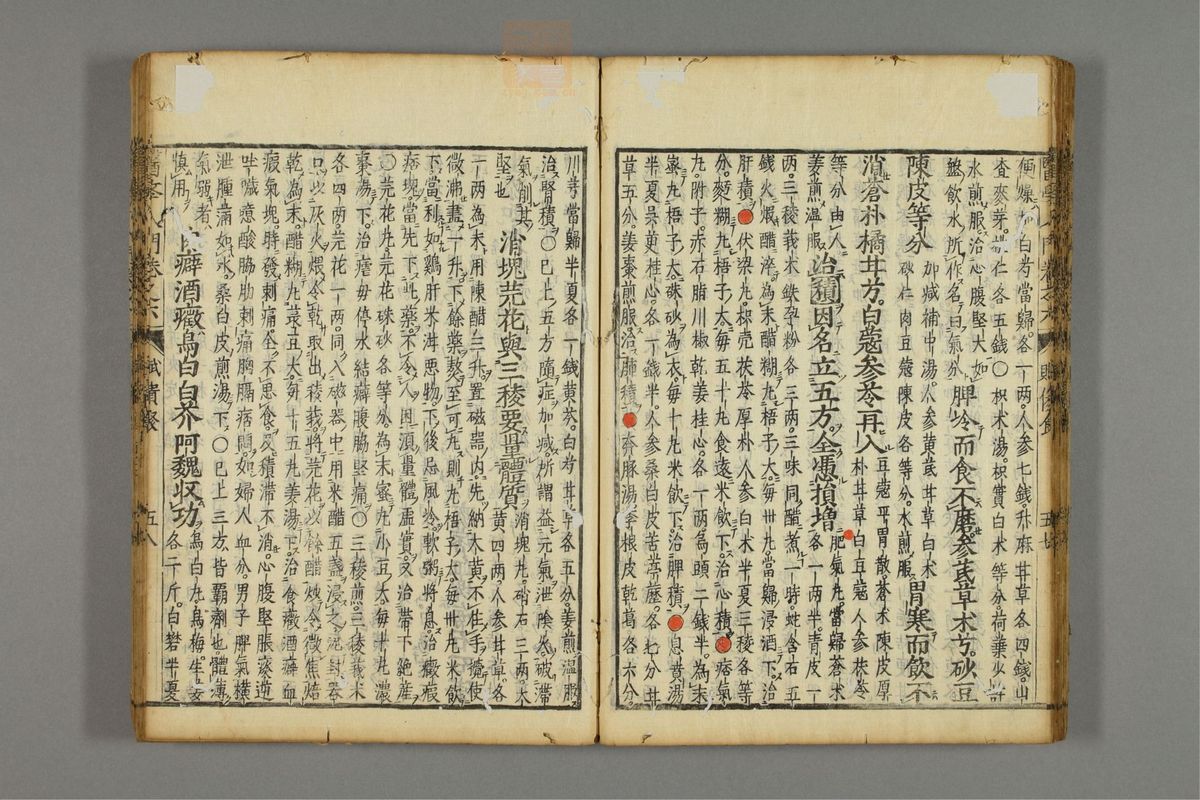 便燥加白芍當歸各一兩人參七錢升麻甘草各四錢山
查麥芽桃仁各五錢〇枳木湯枳實白术等分荷葉少許
水煎服治心腹堅大如
盤飲水所作名曰氣分脾冷而食不磨參芪草术芍砂豆
陳皮等分加減補中湯人參黃芪甘草白术
砂仁肉豆蔻陳皮各等分水煎服胃寒而飲不
消蒼朴橘甘芍白蔻參苓再入豆蔻平胃散蒼术陳皮厚
朴甘草白豆蔻人參茯苓
等分由人
姜煎温服治積因名立五方全憑損增肥氣丸當歸蒼术
各一兩半青皮一
兩三稜莪术鉄孕粉各三兩三味同醋煮一時蛇含石五
錢火煆醋淬為末醋糊丸梧子大每卅丸當歸浸酒下治
肝積伏梁丸枳壳茯苓厚朴人參白术半夏三稜各等
分麪糊丸梧子大每五十丸食遠米飲下治心積痞氣
丸附子赤石脂川椒乾姜桂心各一兩為頭二錢半為末
蜜丸梧子大硃砂為衣每十丸米飲下治脾積息黃湯
半夏吳茱桂心各一錢半人參桑白皮苦葶藶各七分甘
草五分姜棗煎服治肺積奔豚湯李根皮乾葛各六分
川芎當歸半夏各一錢黃芩白芍甘草各五分姜煎温服
治腎積〇已上五方隨症加减所謂益元氣泄陰火破滯
氣削其
堅也消塊芫花與三稜要量體質消塊丸硝石三兩大
黃四兩人參甘草各
一兩為末用陳醋三升置磁器内先納大黃不住手攪使
微沸盡一升下餘藥熬至可丸則丸梧子大每卅丸米飲
下當利如鷄肝米泔惡物下後忌風冷軟粥將息治癥瘕
痞塊當先下此藥不令人困須量體虛實又治帶下絶産
〇芫花丸芫花硃砂各等分為末蜜丸小豆大每十丸濃
棗湯下治瘧母停水結癖腹脇堅痛〇三稜煎三稜莪术
各四兩芫花一兩同入磁器中用米醋五盞浸之泥封器
口以灰火煨令乾取出稜莪將芫花以餘醋炒令微焦焙
乾為末醋糊丸菉豆大每十五丸姜湯下治食癥酒癖血
瘕氣塊時發刺痛全不思食及積滯不消心腹堅脹痰逆
嘔噦意酸脇肋刺痛胸膈痞悶如婦人血分男子脾氣橫
泄腫滿如水桑白皮煎湯下〇已上三方皆霸劑也體薄
氣弱者
慎用食癖酒癥烏白白芥阿魏收功烏白丸烏梅生姜
各一斤白礬半夏